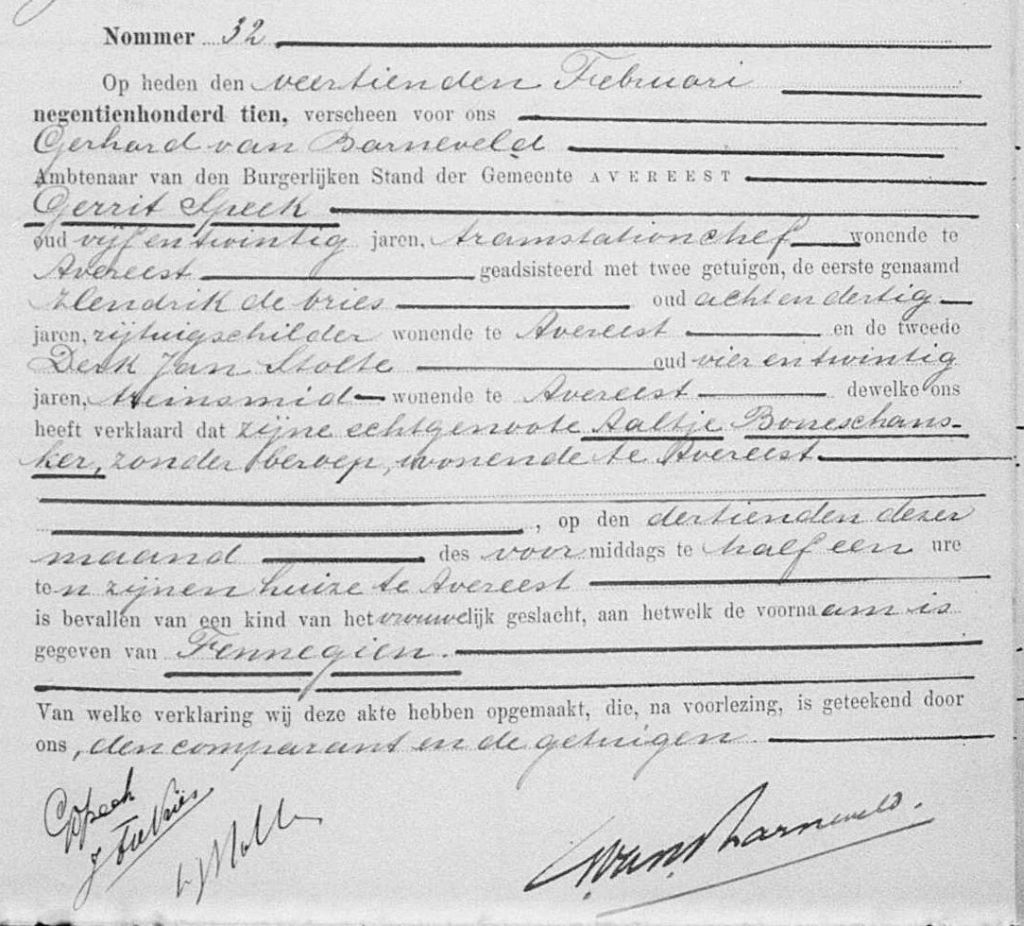 Nommer 32
Op heden den veertienden Februari
negentienhonderd tien, verscheen voor ons
Gerhard van Barneveld
Ambtenaar van den Burgerlijken Stand der Gemeente AVEREEST
Gerrit Speek
oud vijf en twintig jaren, tramstationchef wonende te
Avereest geadsisteerd met twee getuigen, de eerste genaamd
Hendrik de Vries oud acht en dertig
jaren, rijtuigschilder wonende te Avereest en de tweede
Derk Jan Stolte oud vier en twintig
jaren, treinsmid wonende te Avereest dewelke ons
heeft verklaard dat zijne echtgenoote Aaltje Boneschans-
ker, zonder beroep, wonende te Avereest
, op den dertienden dezer
maand des voormiddags te half een ure
ten zijnen huize te Avereest
is bevallen van een kind van het vrouwelijk geslacht, aan hetwelk de voornaam is
gegeven van Fennegien.
Van welke verklaring wij deze akte hebben opgemaakt, die, na voorlezing, is geteekend door
ons, den comparant en de getuigen
GSpeek
HdeVries
DJStolte
GvanBarneveld.